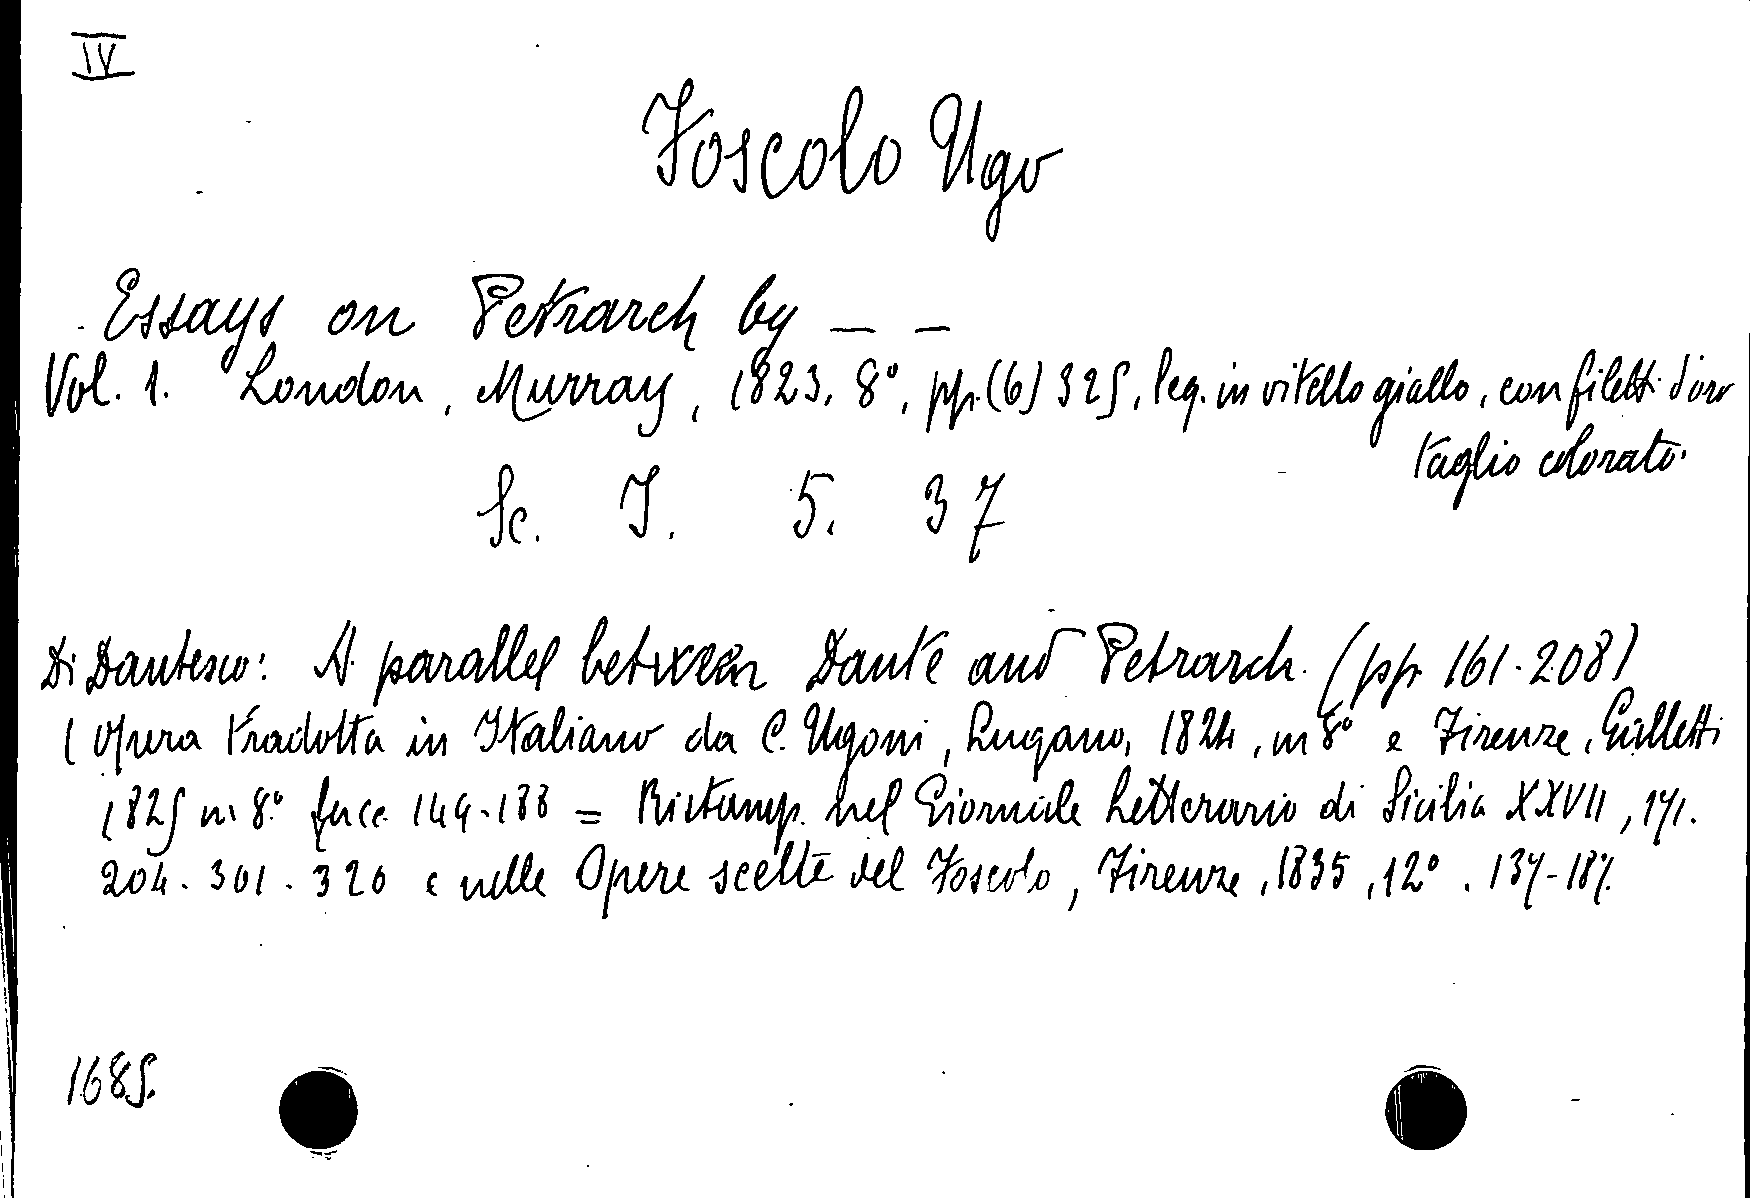 IV
Foscolo Ugo
Essays on Petrarch by — —
Vol. 1. London, Murray, 1823, 8°, pp. (6) 325, leg. in vitello giallo, con filetti d'oro
taglio colorato.
Sc. I. 5. 37
Di Dantesco: A parallel between Dante and Petrarch. (pp. 161-208)
(Opera tradotta in Italiano da C. Ugoni, Lugano, 1824, in 8° e Firenze, Galletti
1825 in 8° facc. 149-188 = Ristamp. nel Giornale Letterario di Sicilia XXVII, 171.
204. 301. 320 e nelle Opere scelte del Foscolo, Firenze, 1835, 12°. 137-187.
1685.